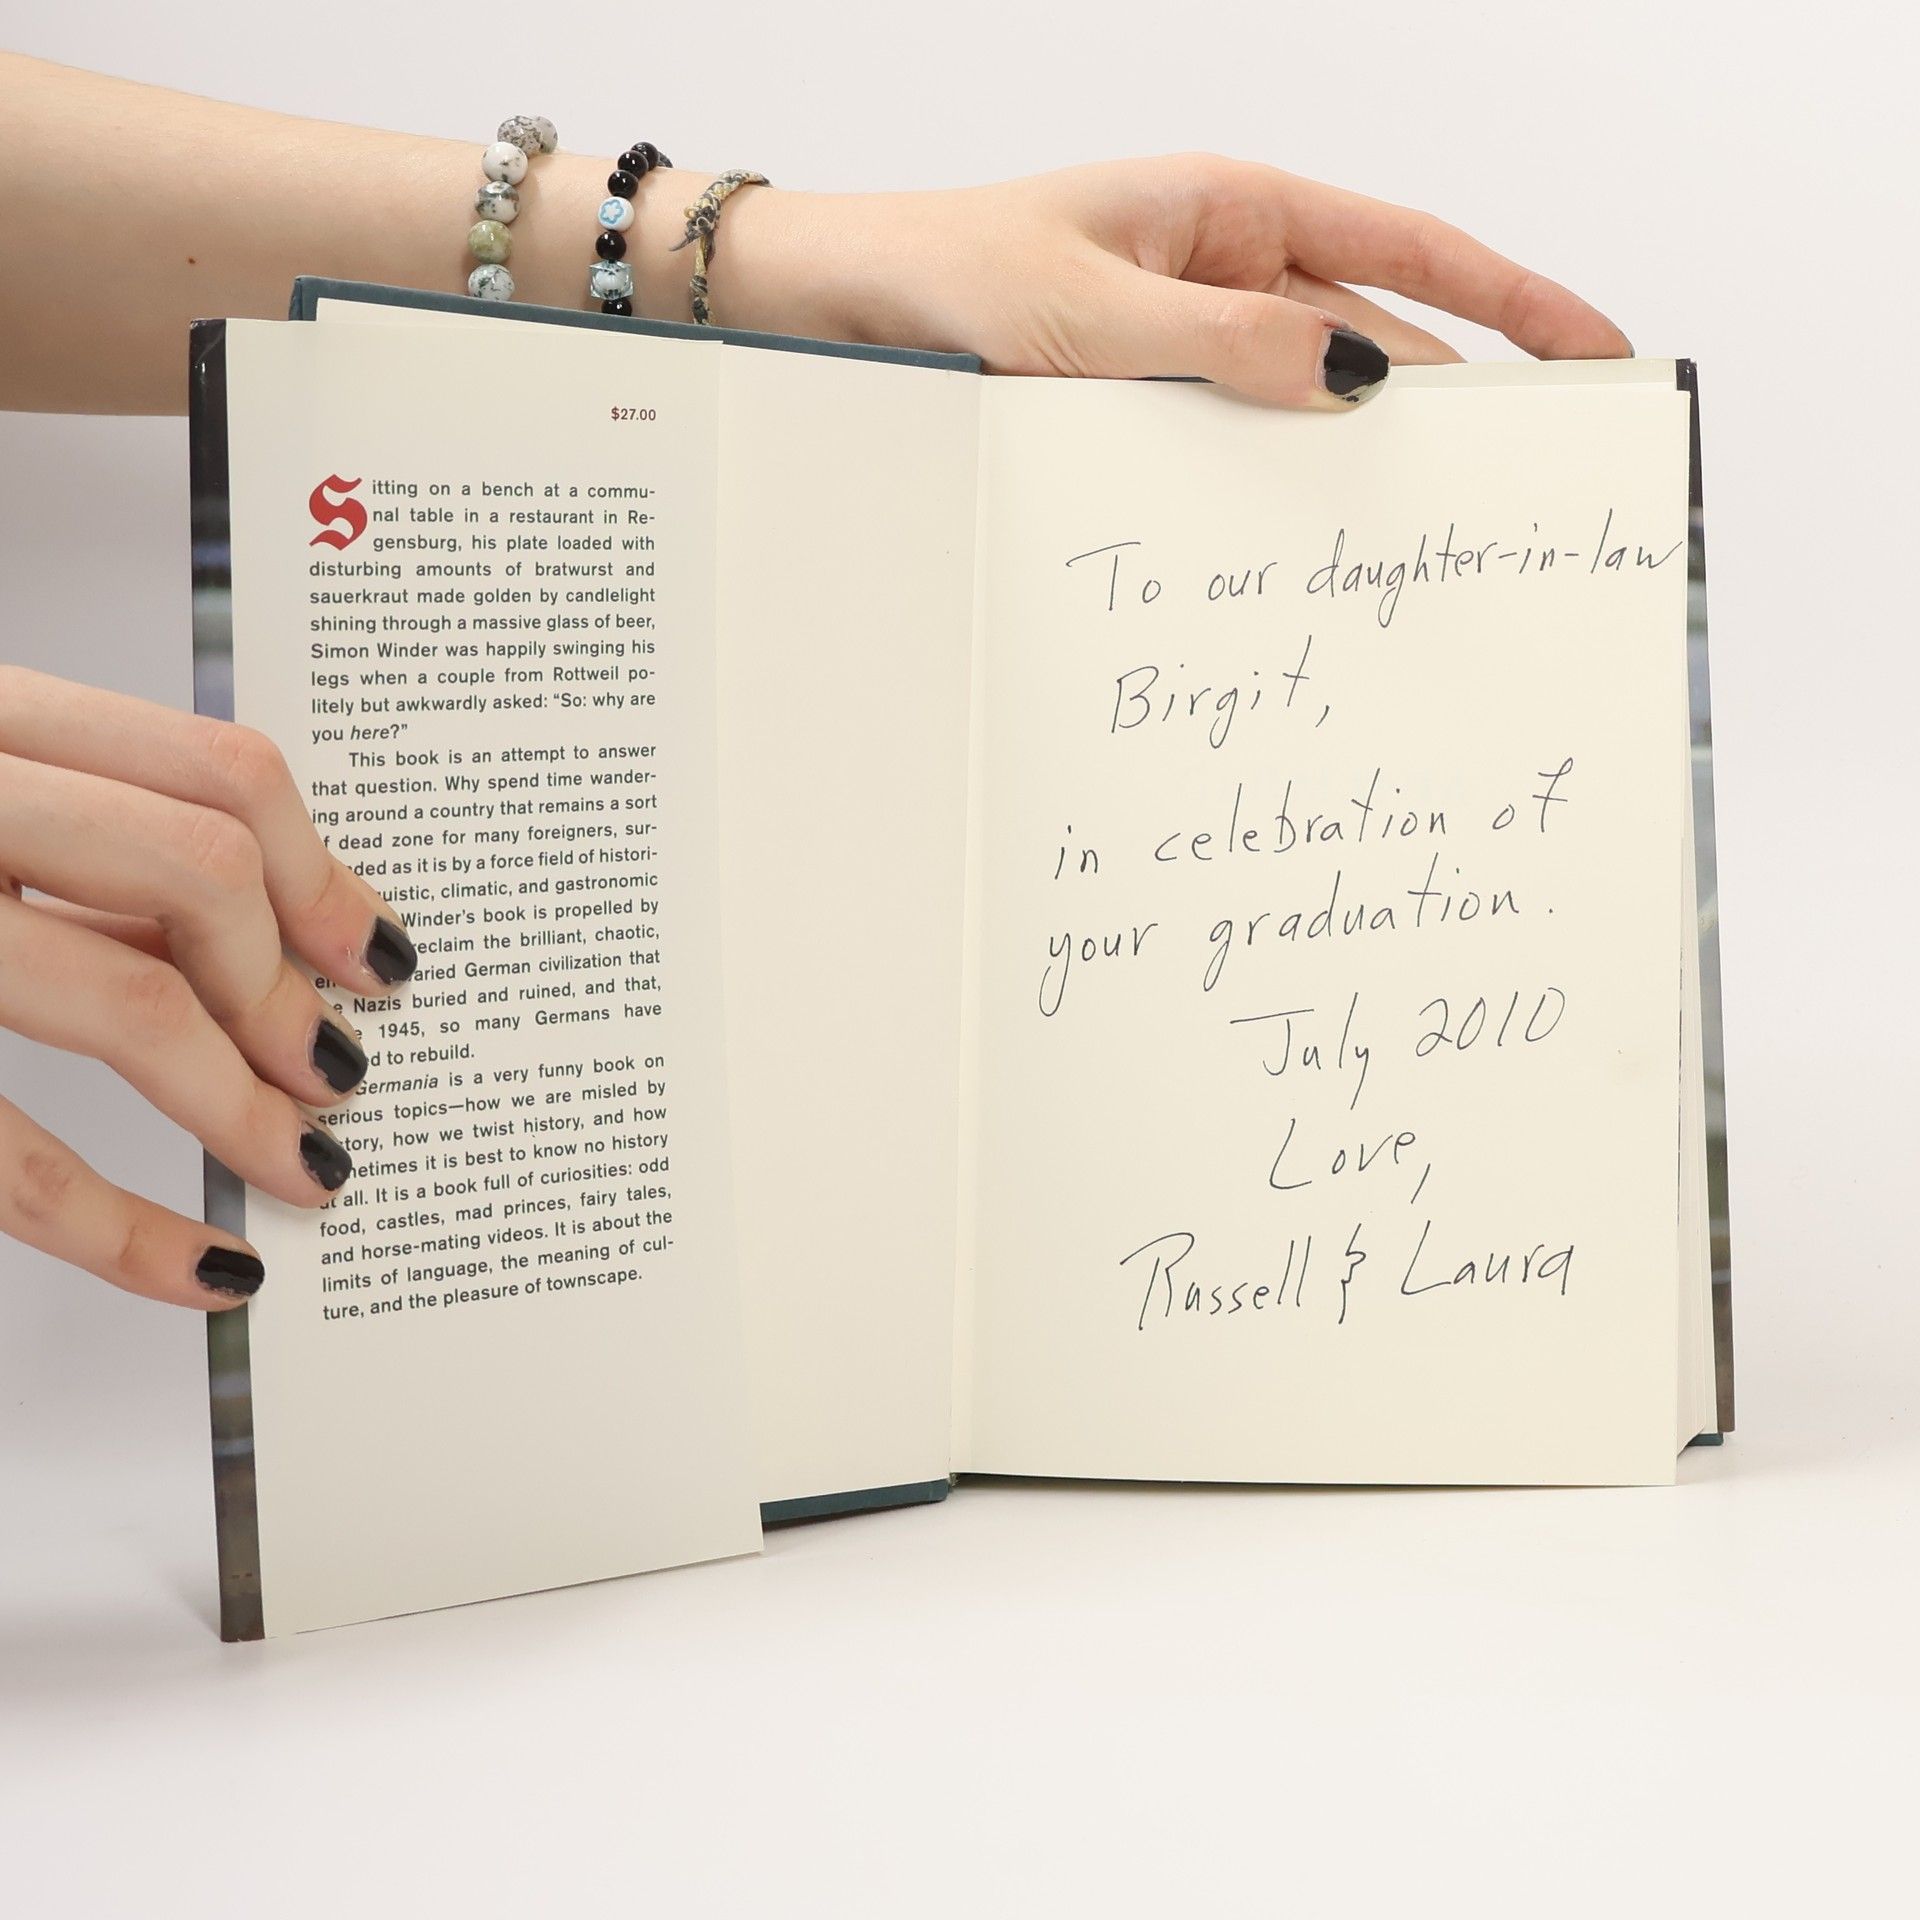 $27.00
Sitting on a bench at a commu-
nal table in a restaurant in Re-
gensburg, his plate loaded with
disturbing amounts of bratwurst and
sauerkraut made golden by candlelight
shining through a massive glass of beer,
Simon Winder was happily swinging his
legs when a couple from Rottweil po-
litely but awkwardly asked: “So: why are
you here?”
This book is an attempt to answer
that question. Why spend time wander-
ing around a country that remains a sort
f dead zone for many foreigners, sur-
ded as it is by a force field of histori-
uistic, climatic, and gastronomic
Winder’s book is propelled by
reclaim the brilliant, chaotic,
en aried German civilization that
e Nazis buried and ruined, and that,
e 1945, so many Germans have
d to rebuild.
Germania is a very funny book on
serious topics—how we are misled by
tory, how we twist history, and how
metimes it is best to know no history
at all. It is a book full of curiosities: odd
food, castles, mad princes, fairy tales,
and horse-mating videos. It is about the
limits of language, the meaning of cul-
ture, and the pleasure of townscape.
To our daughter-in-law
Birgit,
in celebration of
your graduation.
July 2010
Love,
Russell & Laura